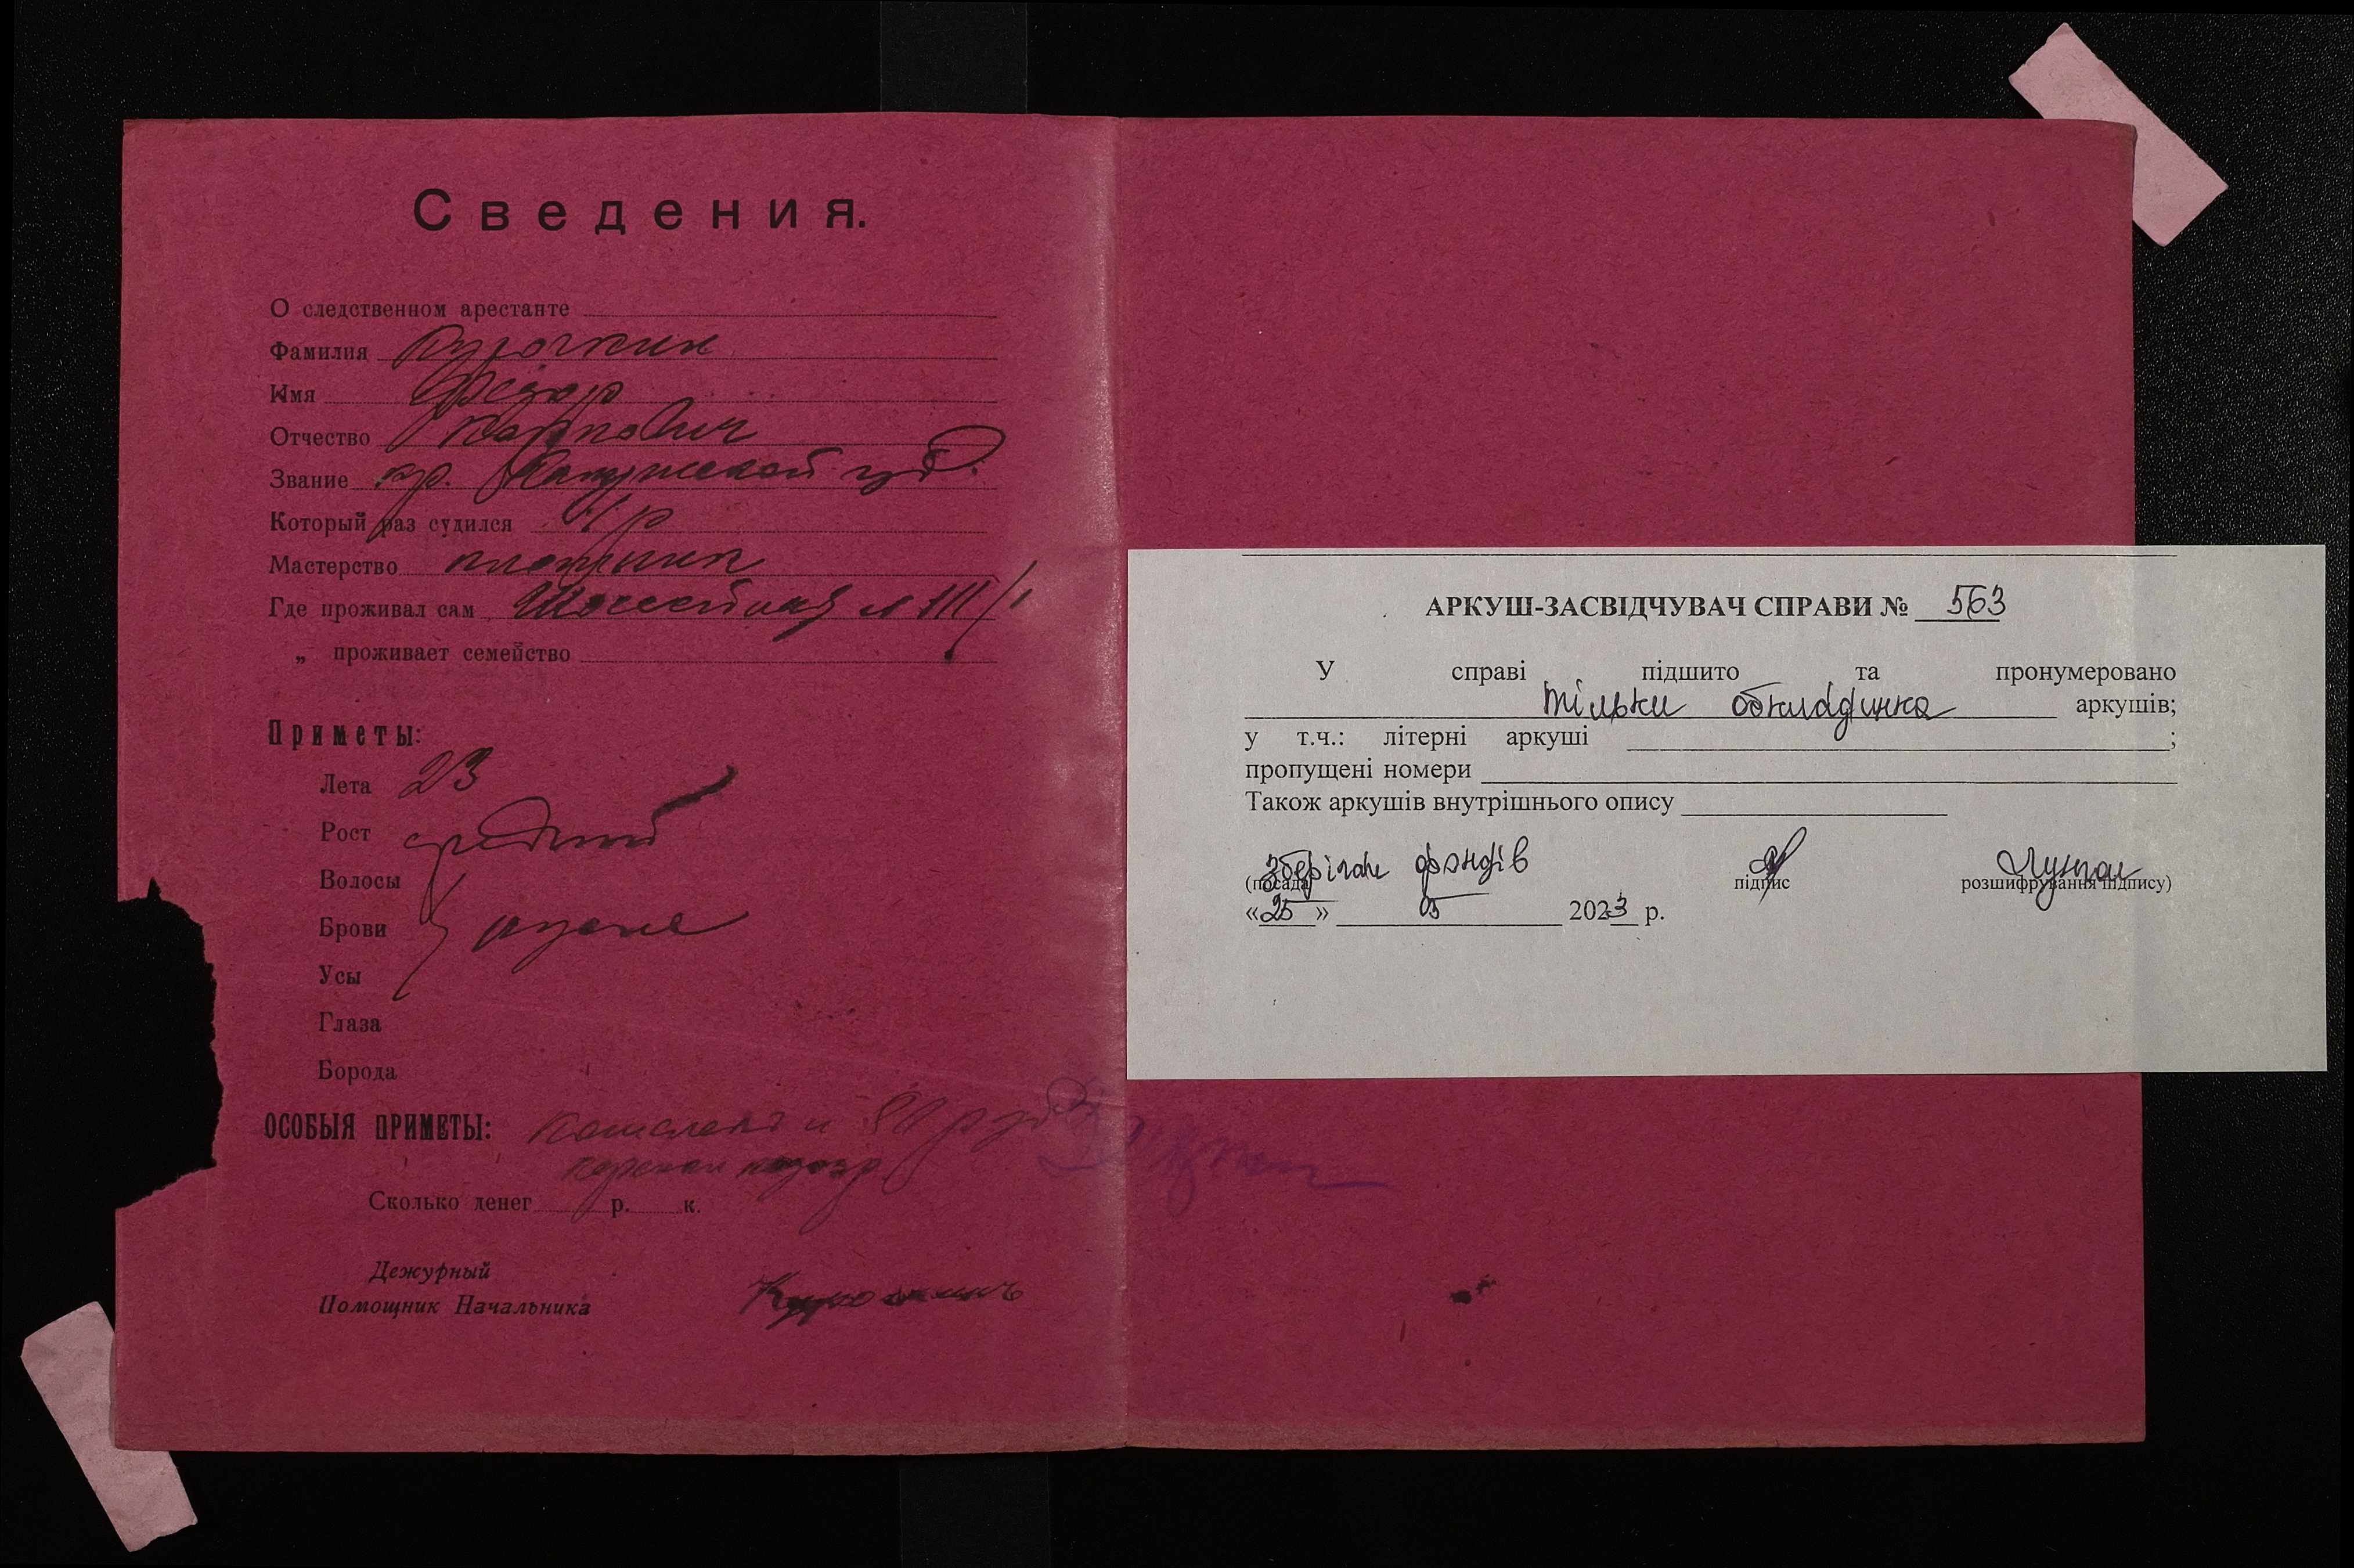 Сведения.
О следственном арестанте
Фамилия Курочкин
Имя Федор
Отчество Карпович
Звание кр. Калужской губ.
Который раз судился 1 р
Мастерство плотник
Где проживал сам Шоссейная
„ проживает семейство
Приметы:
Лета 23
Рост средний
Волосы
Брови русые
Усы
Глаза
Борода
ОСОБЫЯ ПРИМЕТЫ: Кошелек и руб
Сколько денег р. к.
Дежурный
Помощник Начальника
АРКУШ-ЗАСВІДЧУВАЧ СПРАВИ № 563
У справі підшито та пронумеровано
тільки обкладинка аркушів;
у т.ч.: літерні аркуші ;
пропущені номери
Також аркушів внутрішнього опису
Зберігач фондів
(посада підпис розшифрування підпису)
«25» 05 2023 р.